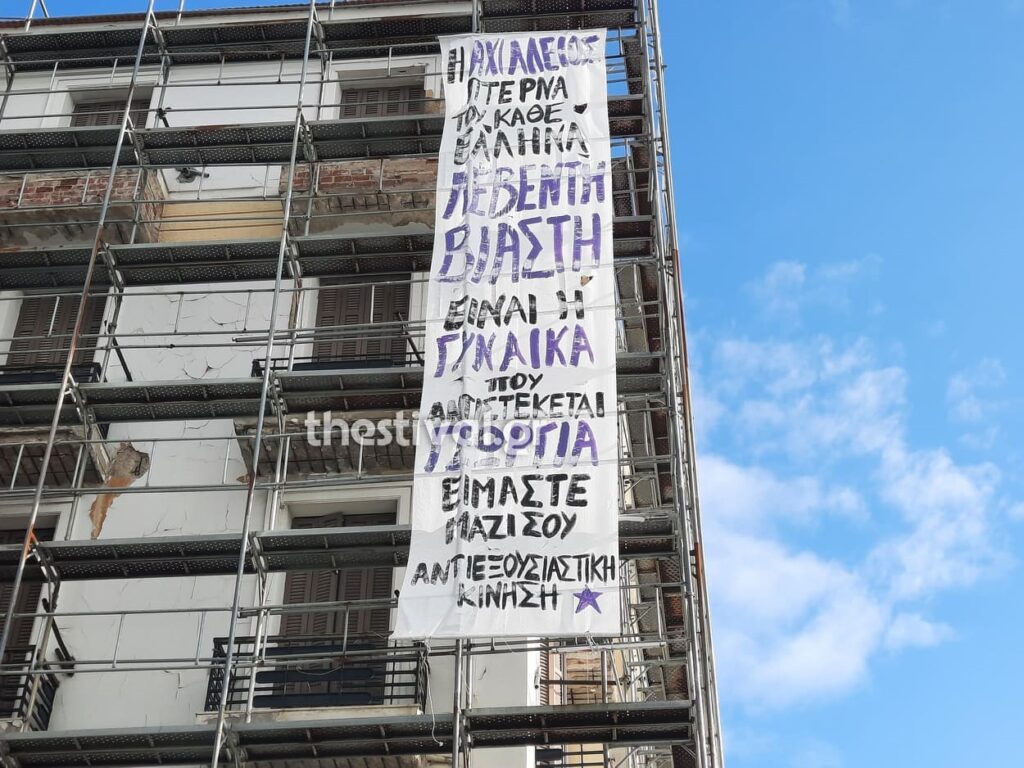 Η ΑΧΙΛΛΕΙΟΣ
ΠΤΕΡΝΑ
ΤΟΥ ΚΑΘΕ
ΕΛΛΗΝΑ
ΛΕΒΕΝΤΗ
ΒΙΑΣΤΗ
ΕΙΝΑΙ Η
ΓΥΝΑΙΚΑ
ΠΟΥ
ΑΝΤΙΣΤΕΚΕΤΑΙ
thestival.gr
ΓΕΩΡΓΙΑ
ΕΙΜΑΣΤΕ
ΜΑΖΙ ΣΟΥ
ΑΝΤΙΕΞΟΥΣΙΑΣΤΙΚΗ
ΚΙΝΗΣΗ